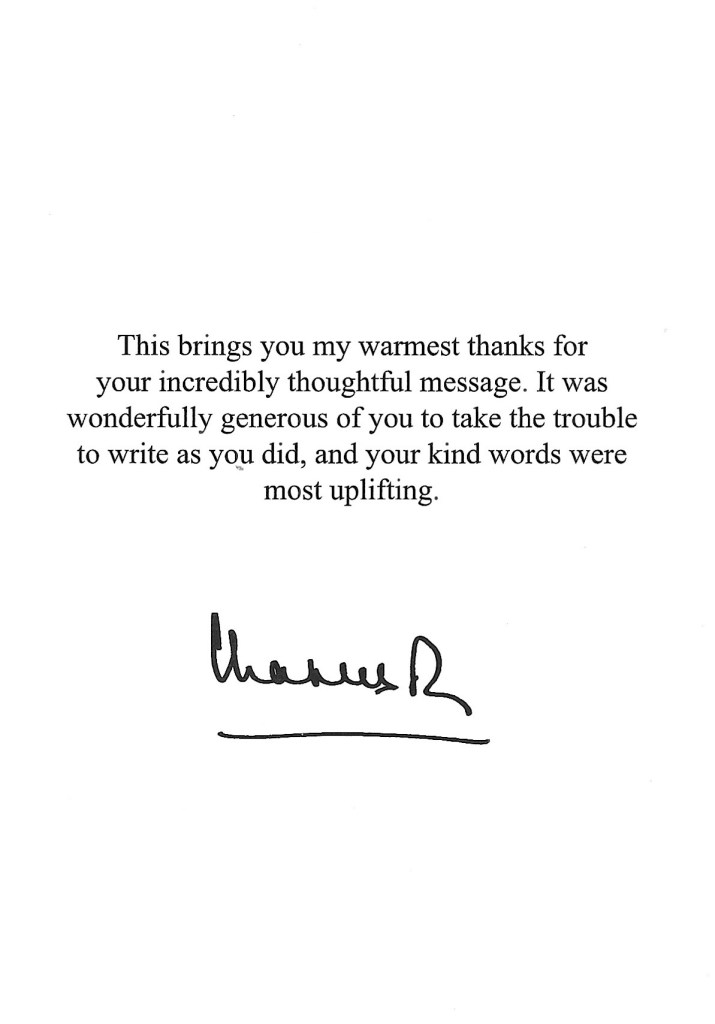 This brings you my warmest thanks for
your incredibly thoughtful message. It was
wonderfully generous of you to take the trouble
to write as you did, and your kind words were
most uplifting.
Charles R